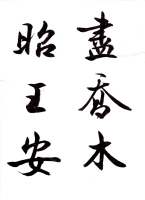 盡喬木
昭王安